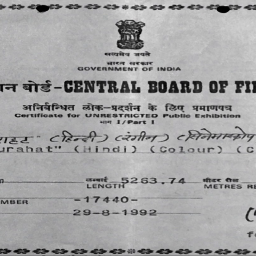 सत्यमेव जयते
भारत सरकार
GOVERNMENT OF INDIA
बोर्ड-CENTRAL BOARD OF FI
अनिर्बन्धित लोक-प्रदर्शन के लिए प्रमाणपत्र
Certificate for UNRESTRICTED Public Exhibition
भाग I/Part I
(हिन्दी) (रंगीन) (सिनेमास्कोप
urahat" (Hindi) (Colour) (C
लम्बाई 5263.74 मीटर रील
LENGTH METRES RE
UMBER -17440-
29-8-1992